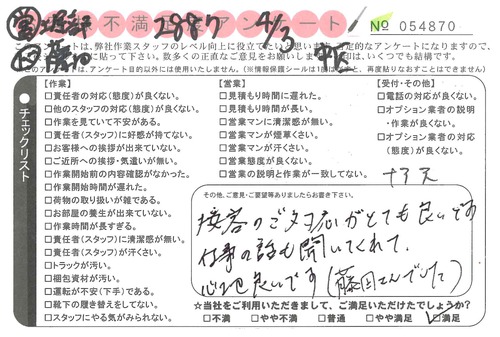 不満 アンケート
2887 4/3
№ 054870
このアンケートは、弊社作業スタッフのレベル向上に役立てたいと思います。
【作業】
□責任者の対応(態度)が良くない。
□他のスタッフの対応(態度)が良くない。
□作業を見ていて不安がある。
□責任者(スタッフ)に好感が持てない。
□お客様への挨拶が出来ていない。
□ご近所への挨拶・気遣いが無い。
□作業開始前の内容確認がなかった。
□作業開始時間が遅れた。
□荷物の取り扱いが雑である。
□お部屋の養生が出来ていない。
□作業時間が長すぎる。
□責任者(スタッフ)に清潔感が無い。
□責任者(スタッフ)が汗くさい。
□トラックが汚い。
□梱包資材が汚い。
□運転が不安(下手)である。
□靴下の履き替えをしてない。
□スタッフにやる気がみられない。
【営業】
□見積もり時間に遅れた。
□見積もり時間が長い。
□営業マンに清潔感が無い。
□営業マンが煙草くさい。
□営業マンが汗くさい。
□営業態度が良くない。
□営業の説明と作業が一致してない。
【受付・その他】
□電話の対応が良くない。
□オプション業者の説明・作業が良くない。
□オプション業者の対応(態度)が良くない。
チェックリスト
その他、ご意見・ご要望等ありましたらお書き下さい。
接客のご対応がとても良いです
仕事の話も聞いてくれて、
心地良いです(藤田さんでした)
☆当社をご利用いただきまして、ご満足いただけたでしょうか?
□不満 □やや不満 □普通 □やや満足 ☑満足